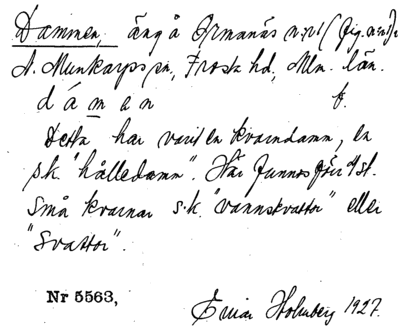 Dammen, äng å Ormanäs n:r 1 (fig. n:r 1),
N. Munkarps sn, Frosta hd, Mlm. län.
dámen f.
Detta har varit en kvarndamm, en
sk "hålledamm". Här funnos förr 4 st.
små kvarnar s.k. "vannskvattor" eller
"Svattor".
Nr 5563,
Einar Holmberg 1927.